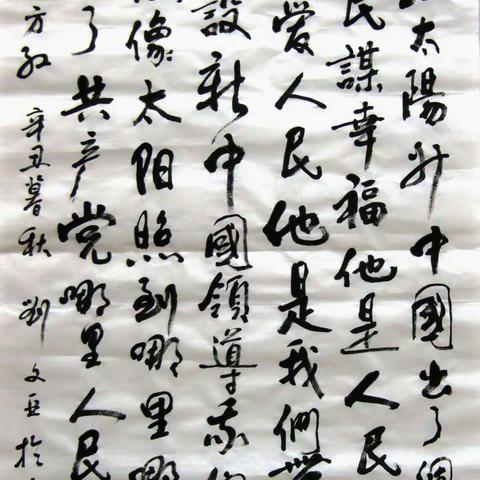 太陽升中國出了個
民謀幸福他是人民
愛人民他是我們
設新中國領導我们
像太阳照到哪里哪
了共产党哪里人民
方红 辛丑暮秋 劉文亚於